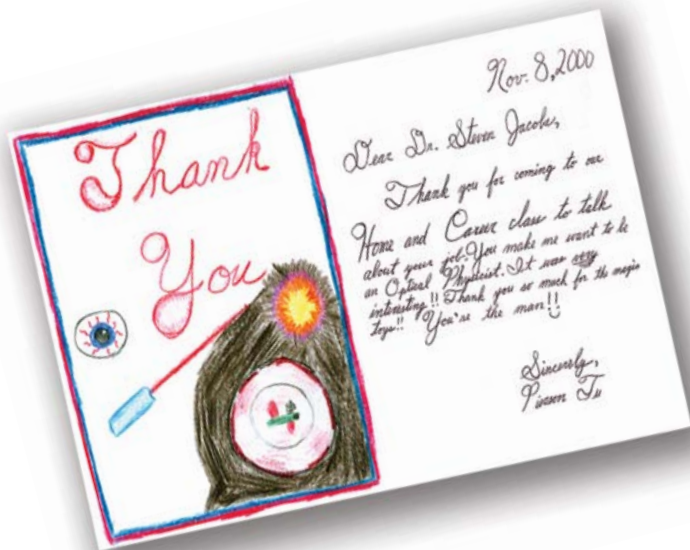 Thank
You
Nov. 8, 2000
Dear Dr. Steven Jacobs,
Thank you for coming to our
Home and Career class to talk
about your job. You make me want to be
an Optical Physicist. It was very
interesting!! Thank you so much for the magic
toys!! You're the man!!
Sincerely,